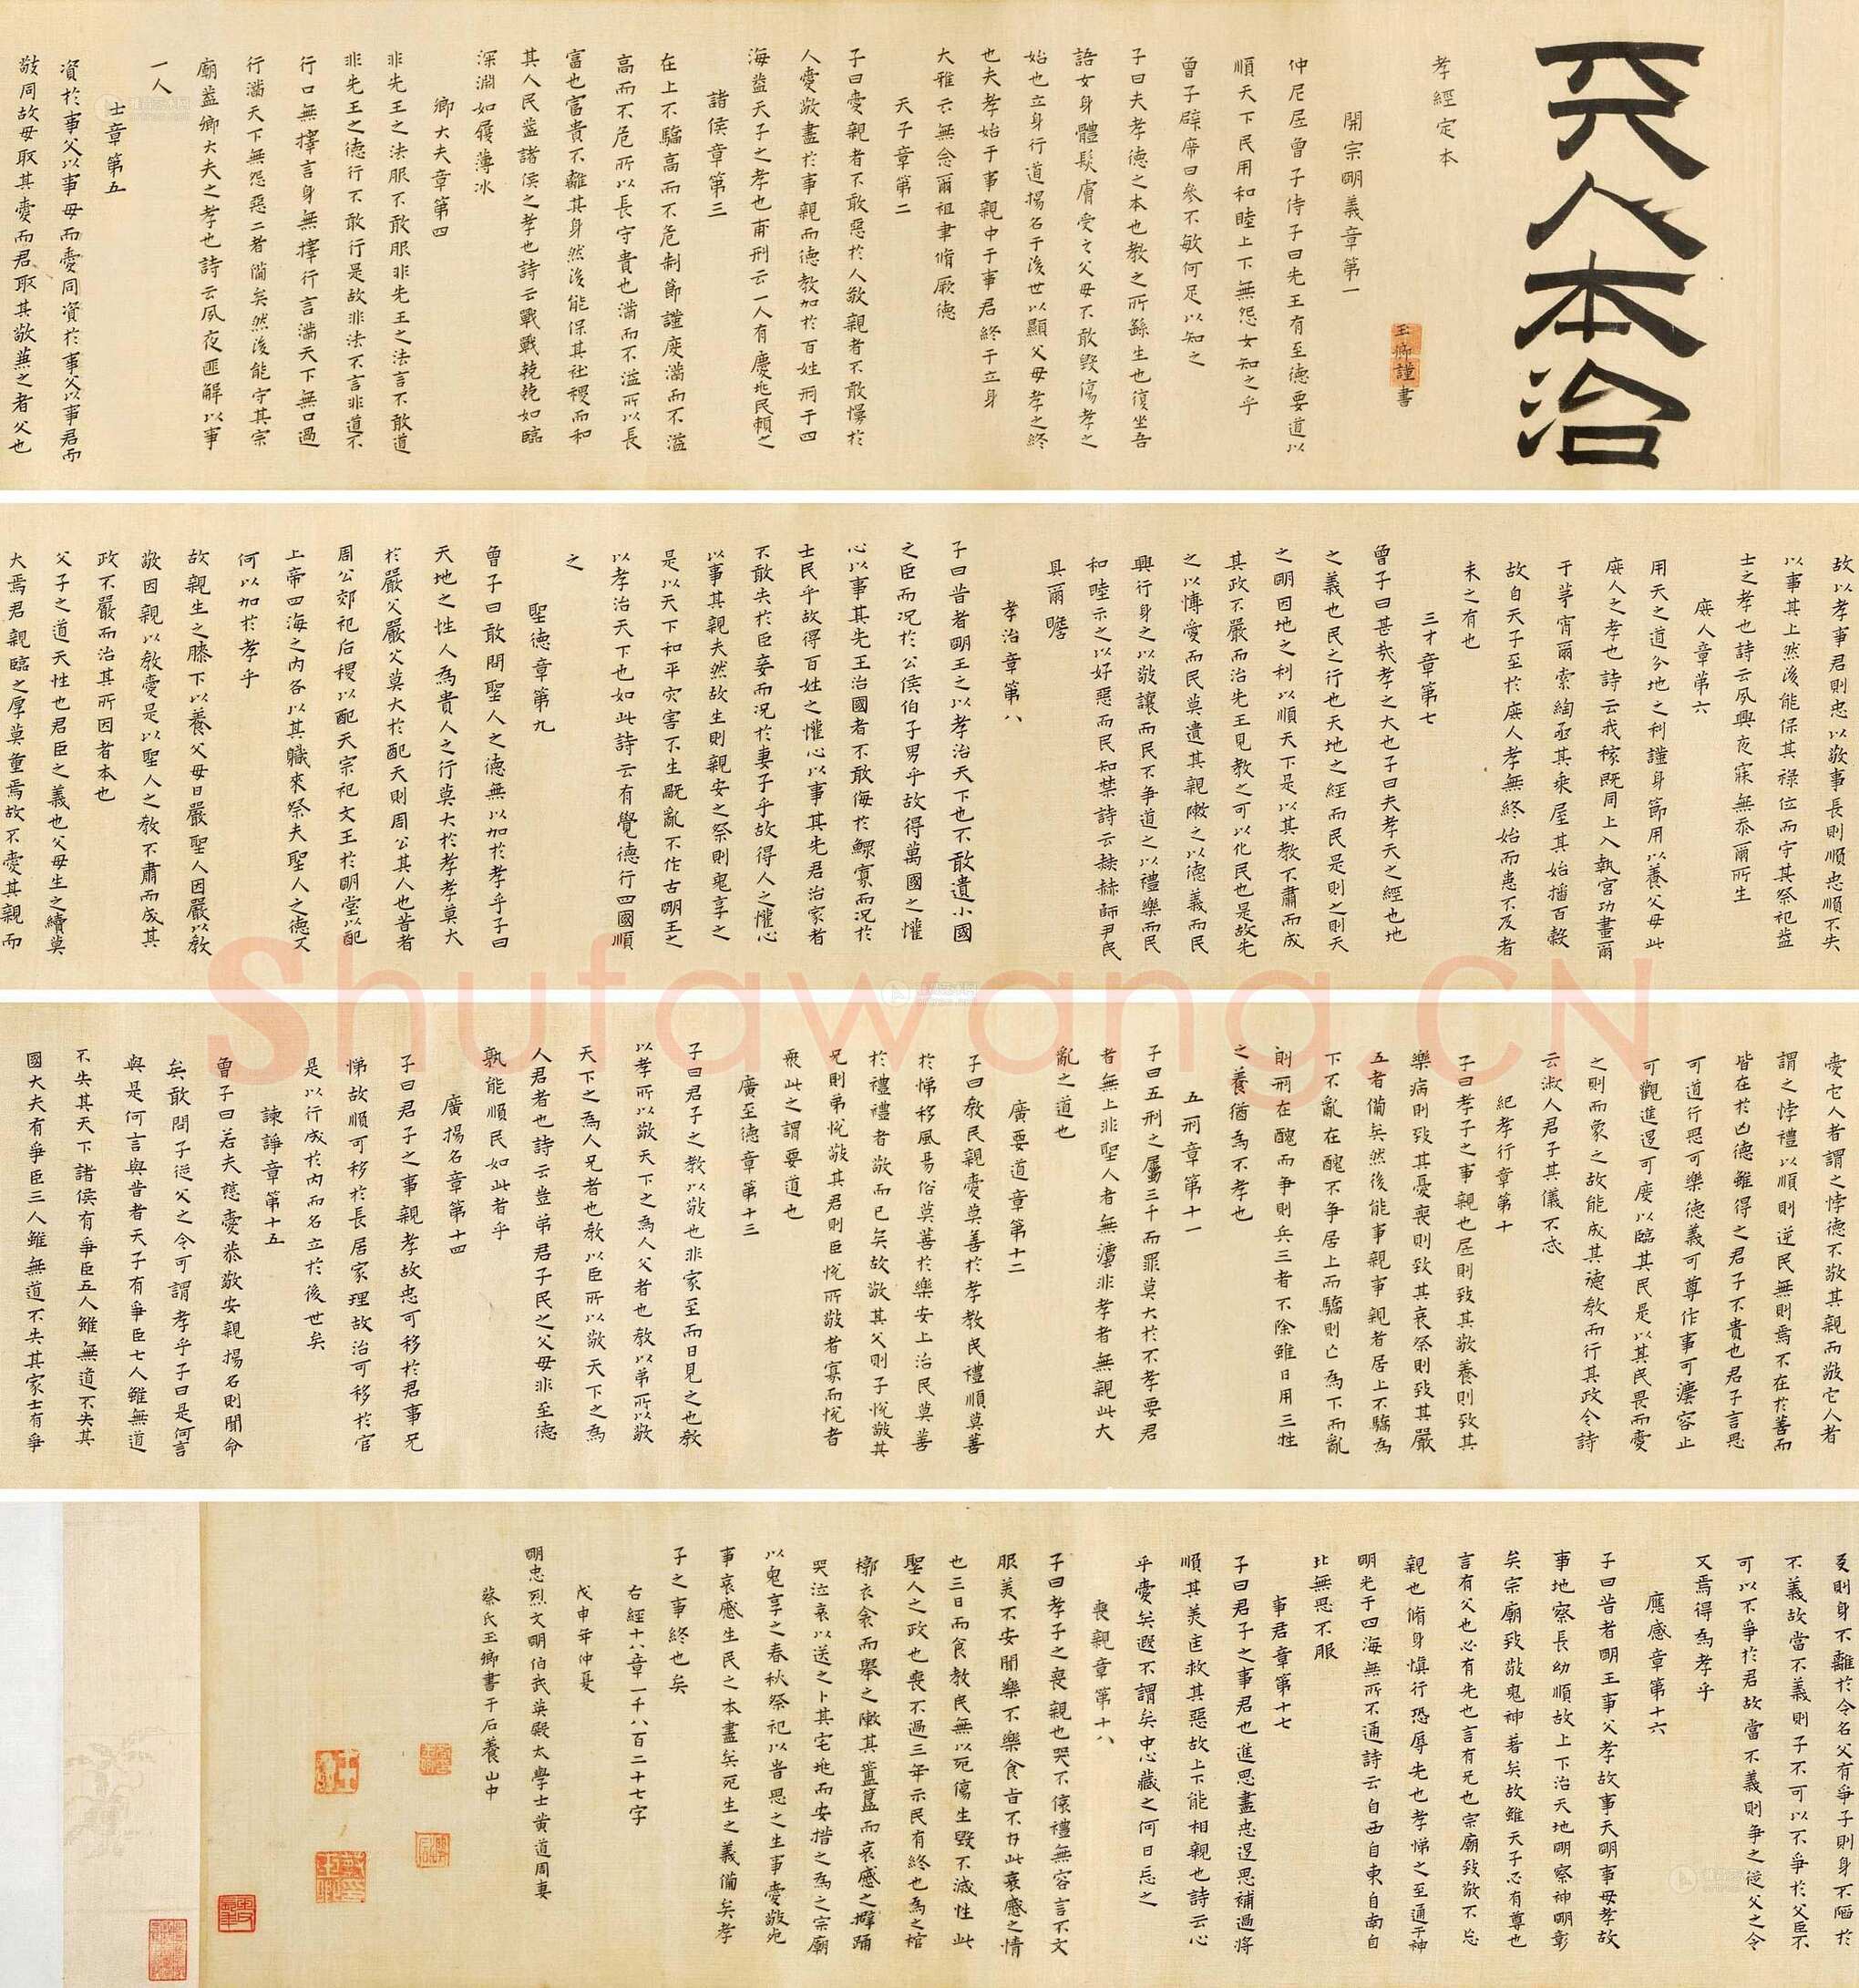 天人本治
孝經定本
玉卿謹書
開宗明義章第一
仲尼凥曾子侍子曰先王有至德要道以
順天下民用和睦上下無怨女知之乎
曾子辟席曰參不敏何足以知之
子曰夫孝德之本也教之所繇生也復坐吾
語女身體髮膚受之父母不敢毀傷孝之
始也立身行道揚名于後世以顯父母孝之終
也夫孝始于事親中于事君終于立身
大雅云無念爾祖聿脩厥德
天子章第二
子曰愛親者不敢惡於人敬親者不敢慢於
人愛敬盡於事親而德教加於百姓刑于四
海蓋天子之孝也甫刑云一人有慶兆民賴之
諸侯章第三
在上不驕高而不危制節謹度滿而不溢
高而不危所以長守貴也滿而不溢所以長
富也富貴不離其身然後能保其社稷而和
其人民蓋諸侯之孝也詩云戰戰兢兢如臨
深淵如履薄冰
卿大夫章第四
非先王之法服不敢服非先王之法言不敢道
非先王之德行不敢行是故非法不言非道不
行口無擇言身無擇行言滿天下無口過
行滿天下無怨惡三者備矣然後能守其宗
廟蓋卿大夫之孝也詩云夙夜匪解以事
一人
士章第五
資於事父以事母而愛同資於事父以事君而
敬同故母取其愛而君取其敬兼之者父也
故以孝事君則忠以敬事長則順忠順不失
以事其上然後能保其祿位而守其祭祀蓋
士之孝也詩云夙興夜寐無忝爾所生
庶人章第六
用天之道分地之利謹身節用以養父母此
庶人之孝也詩云我稼既同上入執宮功晝爾
于茅宵爾索綯亟其乘屋其始播百穀
故自天子至於庶人孝無終始而患不及者
未之有也
三才章第七
曾子曰甚哉孝之大也子曰夫孝天之經也地
之義也民之行也天地之經而民是則之則天
之明因地之利以順天下是以其教不肅而成
其政不嚴而治先王見教之可以化民也是故先
之以博愛而民莫遺其親陳之以德義而民
興行身之以敬讓而民不爭道之以禮樂而民
和睦示之以好惡而民知禁詩云赫赫師尹民
具爾瞻
孝治章第八
子曰昔者明王之以孝治天下也不敢遺小國
之臣而況於公侯伯子男乎故得萬國之懽
心以事其先王治國者不敢侮於鰥寡而況於
士民乎故得百姓之懽心以事其先君治家者
不敢失於臣妾而況於妻子乎故得人之懽心
以事其親夫然故生則親安之祭則鬼享之
是以天下和平灾害不生既亂不作古明王之
以孝治天下也如此詩云有覺德行四國順
之
聖德章第九
曾子曰敢問聖人之德無以加於孝乎子曰
天地之性人為貴人之行莫大於孝孝莫大
於嚴父嚴父莫大於配天則周公其人也昔者
周公郊祀后稷以配天宗祀文王於明堂以配
上帝四海之內各以其職來祭夫聖人之德又
何以加於孝乎
故親生之膝下以養父母日嚴聖人因嚴以教
敬因親以教愛是以聖人之教不肅而成其
政不嚴而治其所因者本也
父子之道天性也君臣之義也父母生之續莫
大焉君親臨之厚莫重焉故不愛其親而
愛它人者謂之悖德不敬其親而敬它人者
謂之悖禮以順則逆民無則焉不在於善而
皆在於凶德雖得之君子不貴也君子言思
可道行思可樂德義可尊作事可灋容止
可觀進退可度以臨其民是以其民畏而愛
之則而象之故能成其德教而行其政令詩
云淑人君子其儀不忒
紀孝行章第十
子曰孝子之事親也凥則致其敬養則致其
樂病則致其憂喪則致其哀祭則致其嚴
五者備矣然後能事親事親者居上不驕為
下不亂在醜不爭居上而驕則亡為下而亂
則刑在醜而爭則兵三者不除雖日用三牲
之養猶為不孝也
五刑章第十一
子曰五刑之屬三千而罪莫大於不孝要君
者無上非聖人者無灋非孝者無親此大
亂之道也
廣要道章第十二
子曰教民親愛莫善於孝教民禮順莫善
於悌移風易俗莫善於樂安上治民莫善
於禮禮者敬而已矣故敬其父則子悅敬其
兄則弟悅敬其君則臣悅所敬者寡而悅者
衆此之謂要道也
廣至德章第十三
子曰君子之教以敬也非家至而日見之也教
以孝所以敬天下之為人父者也教以弟所以敬
天下之為人兄者也教以臣所以敬天下之為
人君者也詩云豈弟君子民之父母非至德
孰能順民如此者乎
廣揚名章第十四
子曰君子之事親孝故忠可移於君事兄
悌故順可移於長居家理故治可移於官
是以行成於內而名立於後世矣
諫諍章第十五
曾子曰若夫慈愛恭敬安親揚名則聞命
矣敢問子從父之令可謂孝乎子曰是何言
與是何言與昔者天子有爭臣七人雖無道
不失其天下諸侯有爭臣五人雖無道不失其
國大夫有爭臣三人雖無道不失其家士有爭
友則身不離於令名父有爭子則身不陷於
不義故當不義則子不可以不爭於父臣不
可以不爭於君故當不義則爭之從父之令
又焉得為孝乎
應感章第十六
子曰昔者明王事父孝故事天明事母孝故
事地察長幼順故上下治天地明察神明彰
矣宗廟致敬鬼神著矣故雖天子必有尊也
言有父也必有先也言有兄也宗廟致敬不忘
親也脩身慎行恐辱先也孝悌之至通于神
明光于四海無所不通詩云自西自東自南自
北無思不服
事君章第十七
子曰君子之事君也進思盡忠退思補過將
順其美匡救其惡故上下能相親也詩云心
乎愛矣遐不謂矣中心藏之何日忘之
喪親章第十八
子曰孝子之喪親也哭不偯禮無容言不文
服美不安聞樂不樂食旨不甘此哀慼之情
也三日而食教民無以死傷生毀不滅性此
聖人之政也喪不過三年示民有終也為之棺
槨衣衾而舉之陳其簠簋而哀慼之擗踊
哭泣哀以送之卜其宅兆而安措之為之宗廟
以鬼享之春秋祭祀以旹思之生事愛敬死
事哀慼生民之本盡矣死生之義備矣孝
子之事終也矣
右經十八章一千八百二十七字
戊申年仲夏
明忠烈文明伯武英殿太學士黄道周妻
蔡氏玉卿書于石養山中
Shufawang.CN